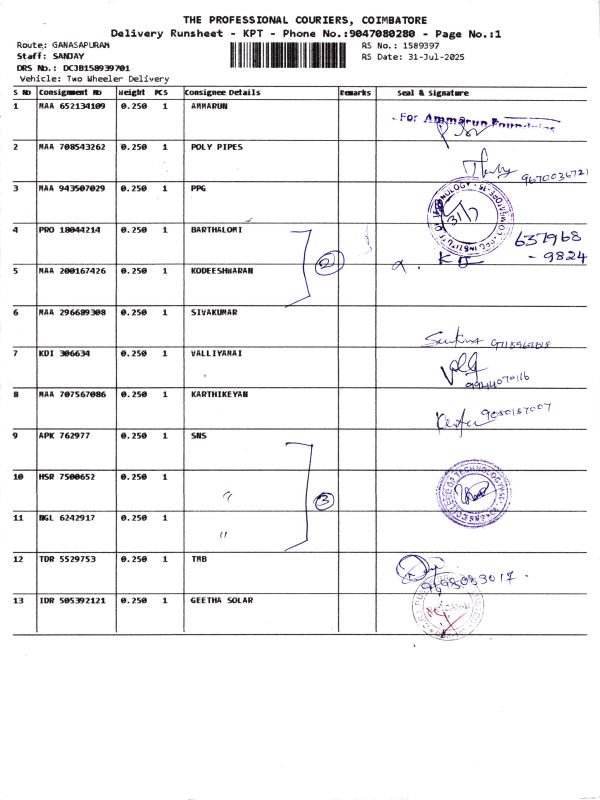 THE PROFESSIONAL COURIERS, COIMBATORE
Delivery Runsheet - KPT - Phone No.:9047080280 - Page No.:1
Route: GANASAPURAM RS No.: 1589397
Staff: SANJAY RS Date: 31-Jul-2025
DRS No.: DCJB158939701
Vehicle: Two Wheeler Delivery
S No Consignment No Weight PCS Consignee Details Remarks Seal & Signature
1 MAA 652134109 0.250 1 AMMARUN
For Ammarun Foundries
2 MAA 708543262 0.250 1 POLY PIPES
9670036721
3 MAA 943507029 0.250 1 PPG
31/7
4 PRO 18044214 0.250 1 BARTHALOMI
2
637968
- 9824
5 MAA 200167426 0.250 1 KODEESHWARAN
6 MAA 296689308 0.250 1 SIVAKUMAR
7 KDI 306634 0.250 1 VALLIYAMAI
9944070116
8 MAA 707567086 0.250 1 KARTHIKEYAN
9080157007
9 APK 762977 0.250 1 SNS
10 HSR 7500652 0.250 1 "
3
11 NGL 6242917 0.250 1 "
12 TDR 5529753 0.250 1 TMB
9698083017.
13 IDR 505392121 0.250 1 GEETHA SOLAR